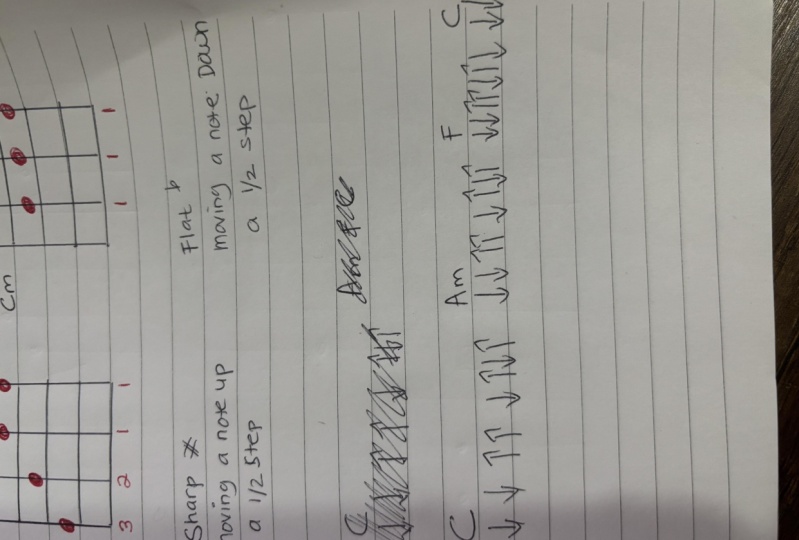 Cm
3 2 1 1
1 1 1
Sharp #
Flat b
moving a note up
moving a note Down
a 1/2 step
a 1/2 step
C Am F C
↓ ↓ ↑ ↑ ↓ ↑ ↓ ↑ ↓ ↓ ↑ ↑ ↓ ↑ ↓ ↑ ↓ ↓ ↑ ↑ ↓ ↑ ↓ ↑ ↓ ↓